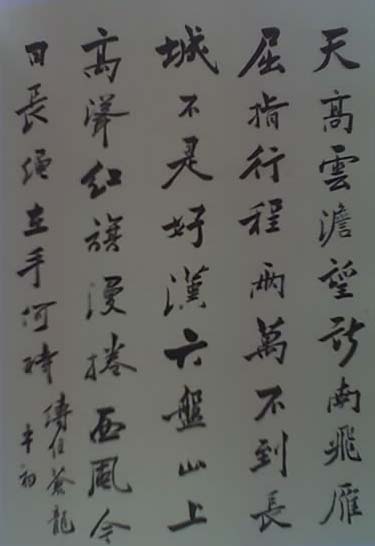 天高雲澹望断南飛雁
屈指行程兩萬不到長
城不是好漢六盤山上
高峯红旗漫捲西風今
日長纓在手何時
縛住蒼龍